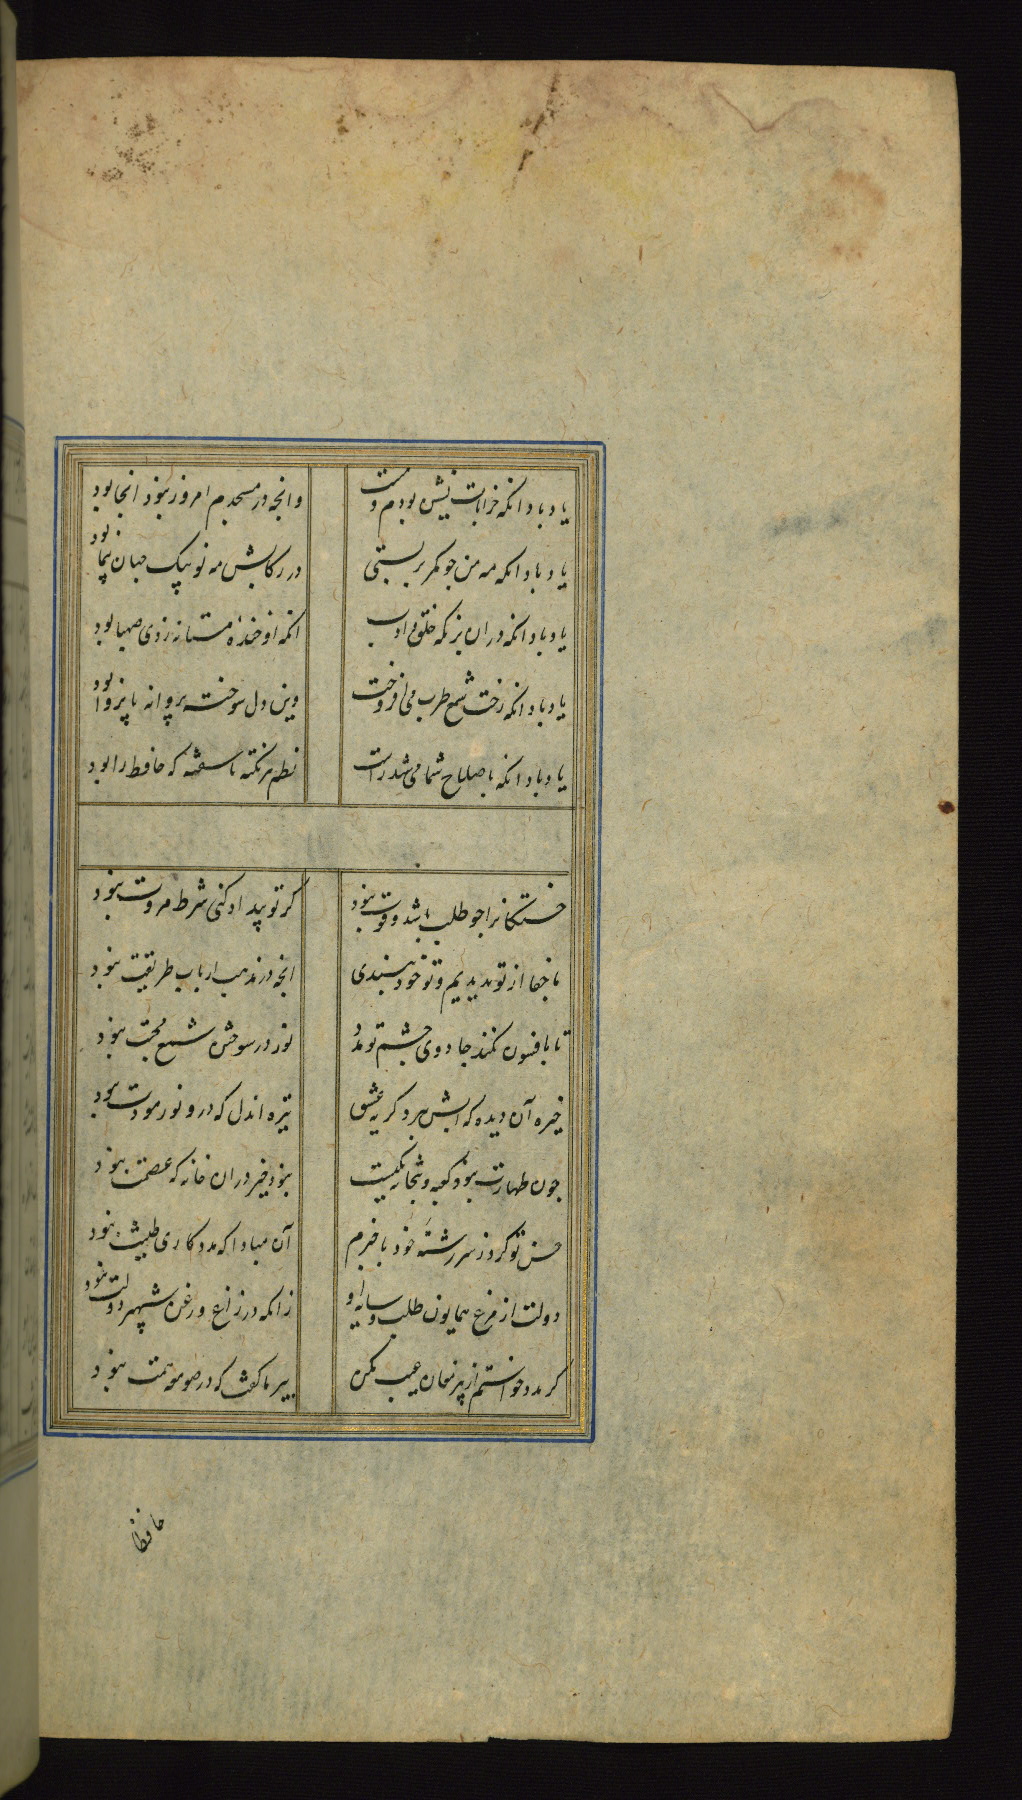 یاد باد انکه خرابات نشین بودم و مست وانچه در مسجدم امروز نبود انجا بود
یاد باد انکه مه من جو کمر بر بستی در رکابش مه نو پیک جهان پیما بود
یاد باد انکه دران بزمکه خلق و ادب انکه او خندهٔ مستانه زدی صهبا بود
یاد باد انکه رخت شمع طرب می افروخت وین دل سوخته پروانه ناپروا بود
یاد باد انکه باصلاح شما می شد راست نظم هر نکته ناسفته که حافظ را بود
خستکانرا جو طلب باشد و قوت نبود کر تو بیداد کنی شرط مروت نبود
ما جفا از تو ندیدیم و تو خود نپسندی انچه در مذهب ارباب طریقت نبود
تا بافسون نکند جادوی چشم تو مدد نور در سوختن شمع محبت نبود
خیره آن دیده که آبش نبرد کریه عشق تیره اندل که درو نور مودت نبود
جون طهارت نبود کعبه و بتخانه یکیست نبود خیر دران خانه که عصمت نبود
حسن تو کرد ز سررشته خود با خبرم آن مبادا که مددکاری نبود
دولت از مرغ همایون طلب و سایه او زانکه در زاغ و زغن شهپر دولت نبود
کر مدد خواستم از پیر مغان عیب مکن پیر ما کفت که در صومعه همت نبود
حافظا